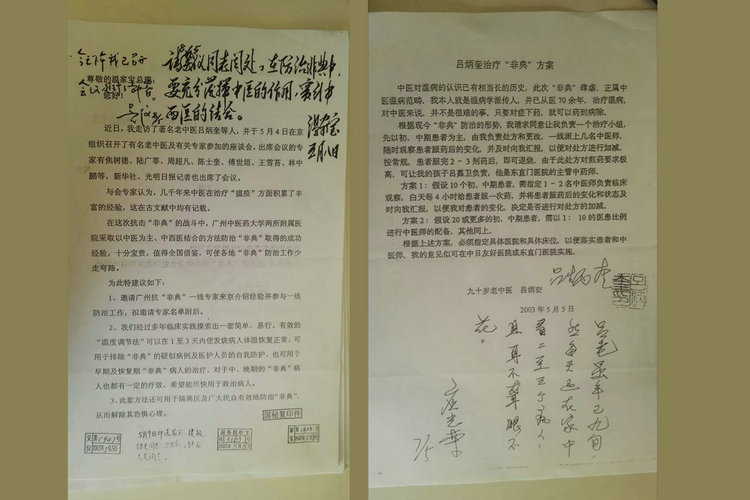 请毅同志阅处,在防治非典中,
要充分发挥中医的作用,实行中
西医的结合。
温家宝
五月八日
尊敬的温家宝总理:
您好!
近日,我走访了著名老中医吕炳奎等人,并于5月4日在京
组织召开了有名老中医及有关专家参加的座谈会,出席会议的专
家有焦树德、陆广莘、周超凡、陈士奎、傅世垣、王雪苔、林中
鹏等,新华社、光明日报记者也出席了会议。
与会专家认为,几千年来中医在治疗“瘟疫”方面积累了丰
富的经验,这在古文献中均有记载。
在这次抗击“非典”的战斗中,广州中医药大学两所附属医
院采取以中医为主、中西医结合的方法防治“非典”取得的成功
经验,十分宝贵,值得全国借鉴,可使各地“非典”防治工作少
走弯路。
为此特建议如下:
1、邀请广州抗“非典”一线专家来京介绍经验并参与一线
防治工作。拟邀请专家名单附后。
2、我们经过多年临床实践摸索出一套简单、易行、有效的
“温度调节法”可以在1至3天内使发烧病人体温恢复正常,可
用于排除“非典”的疑似病例及医护人员的自我防护,也可用于
早期及恢复期“非典”病人的治疗,对于中、晚期的“非典”病
人也都有一定的疗效,希望能尽快用于救治病人。
3、此套方法还可用于隔离区及广大民众有效地防治“非典”,
从而解除其恐慌心理。
国秘复印件
吕炳奎治疗“非典”方案
中医对温病的认识已有相当长的历史,此次“非典”肆虐,正属中
医温病范畴,我本人就是温病学派传人,并已从医70余年,治疗温病,
对中医来说,并不是很难的事,只要对症下药,就可以药到病除。
根据现今“非典”防治的形势,我请求同意让我负责一个治疗小组,
先以初、中期患者为主,由我负责处方和更改,一线派上几名中医师,
随时观察患者服药后的变化,并及时向我汇报,以便对处方进行加减。
按常规,患者服完2-3剂药后,即可退烧。由于此处方对煎药要求极
高,可让我的孩子吕嘉卫负责,他是东直门医院的主管中药师。
方案1:假设10个初、中期患者,需指定1-2名中医师负责临床
观察,白天每4小时给患者服一次药,并将患者服药后的变化和状态及
时向我汇报,以便我对患者的变化,决定是否进行对处方的加减。
方案2:假设20或更多的初、中期患者,需以1:10的医患比例
进行中医师的配备,其他同上。
根据上述方案,必须指定具体医院和具体床位,以便落实患者和中
医师。我的意见似可在中日友好医院或东直门医院实施。
吕炳奎
九十岁老中医 吕炳奎
2003年5月5日
吕老虽年已九旬,